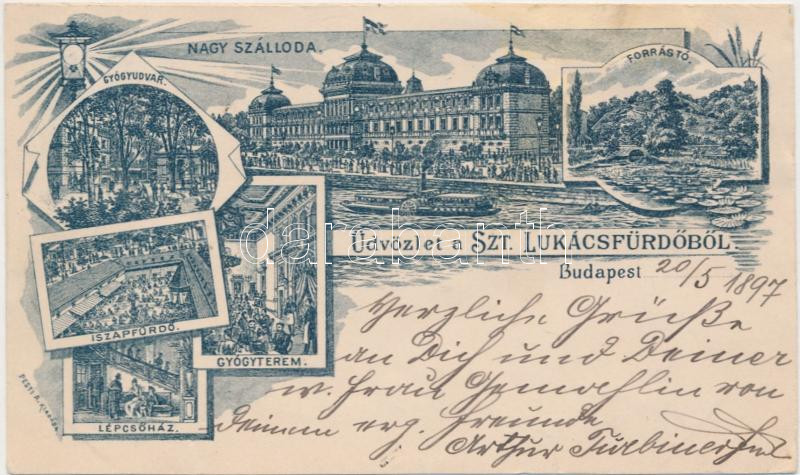 NAGY SZÁLLODA.
GYÓGYUDVAR.
FORRÁSTÓ.
Üdvözlet a SZT. LUKÁCSFÜRDŐBŐL
Budapest 20/5 1897
ISZAPFÜRDŐ.
GYÓGYTEREM.
LÉPCSŐHÁZ.
PESTI A.
Herzliche Grüße
an Dich und Deiner
w. Frau Gemahlin von
Deinem erg. Freunde
Arthur
darabanth